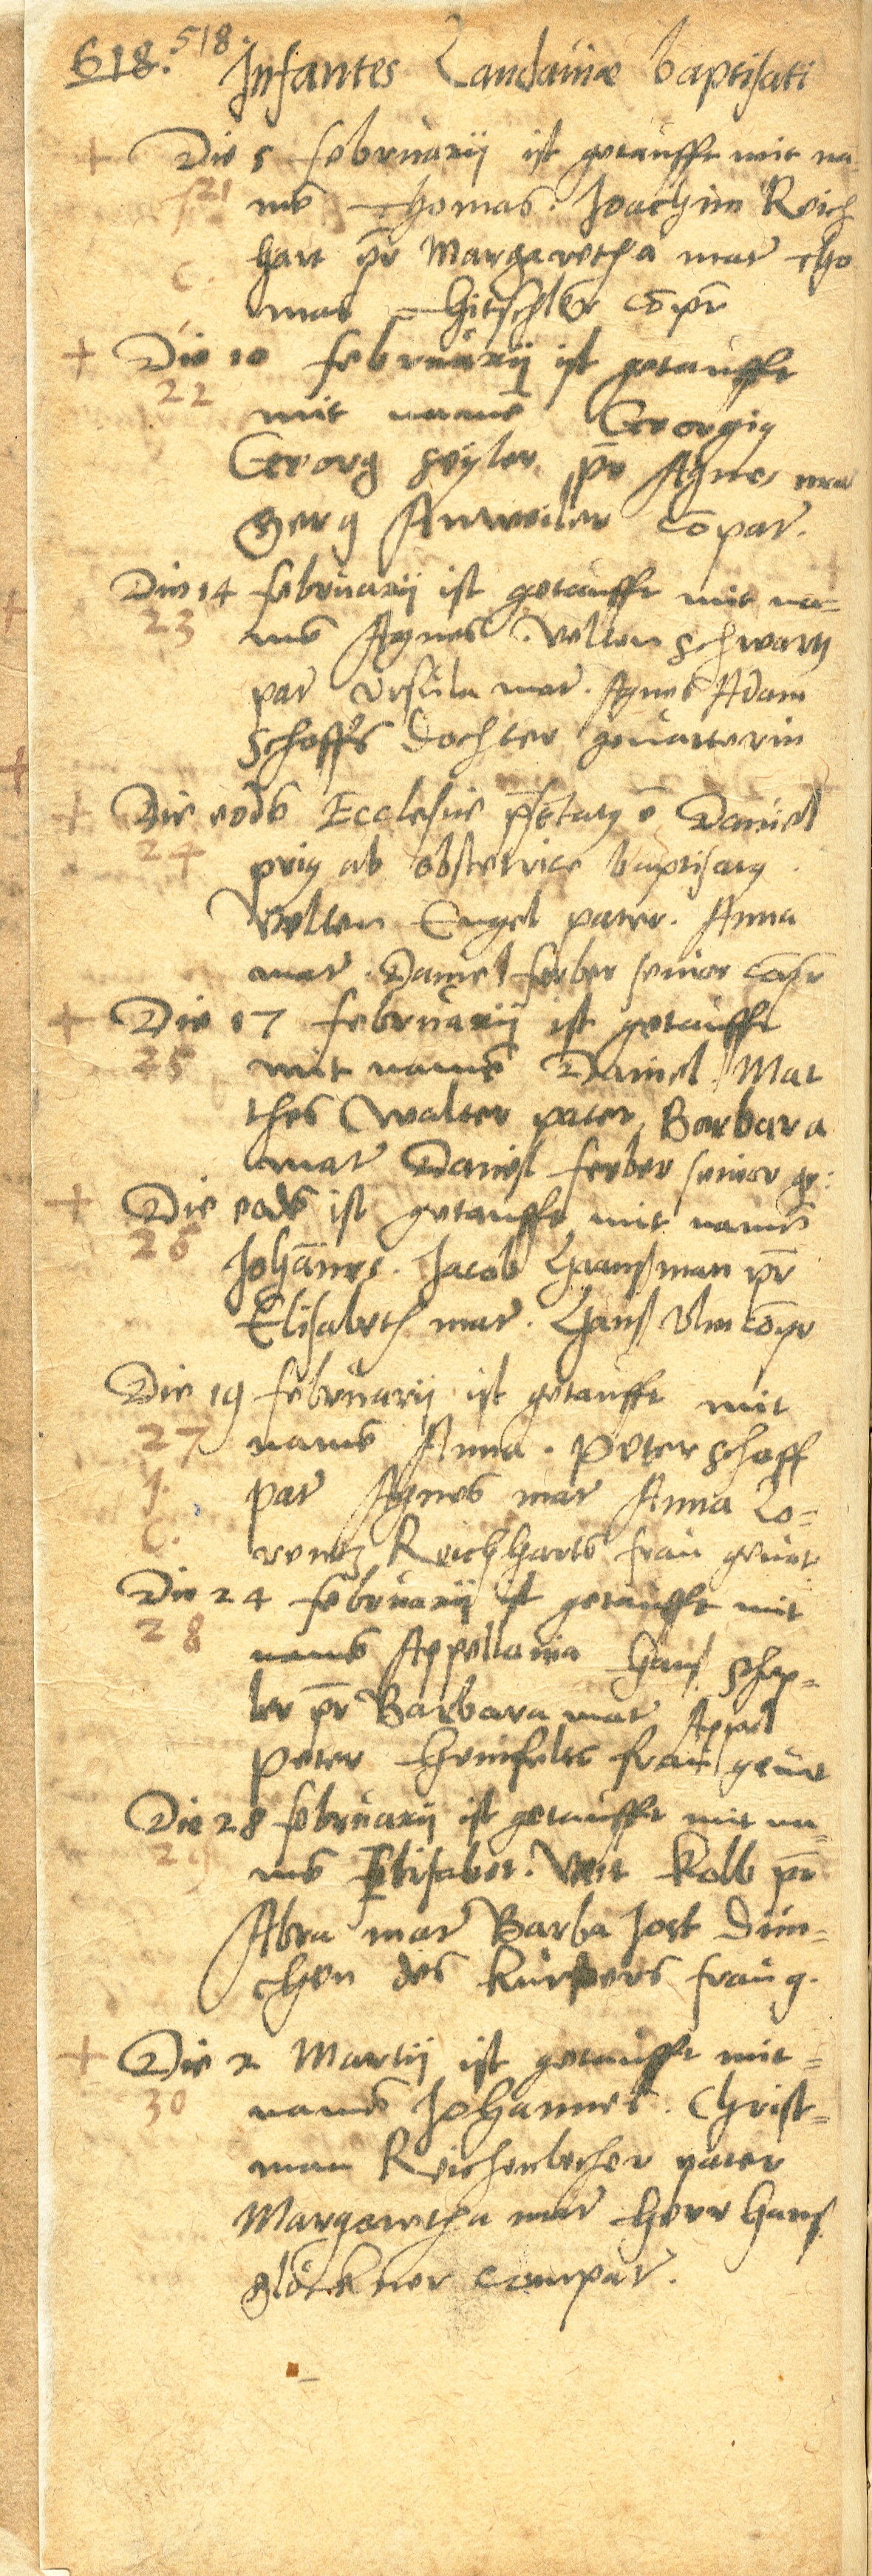 618. 518.
Infantes Landaviae baptisati
+ Die 5 februarij ist getaufft mit na
21 mē Thomas. Joachim Reich
C. hart pr̄ Margaretha mat̄ tho
mas Hirschler cōpr̄
+ Die 10 februarij ist getaufft
22 mit namē Georgiꝰ
Georg seyler pr̄ Agnes
Gerg Anweiler cōpat̄.
Die 14 februarij ist getaufft mit na=
23 mē Agnes. Velten schwartz
pat̄ Ursula mat̄. Agnes Adam
Schoffs dochter gevatterin
+ Die eodē Ecclesiae Daniel
24 priꝰ ab obstetrice baptisatꝰ
Velten Engel pater. Anna
mat̄. Daniel ferber senior
+ Die 17 februarij ist getaufft
25 mit namē Daniel. Mat
thes Walter pater, Barbara
mat̄ Daniel ferber senior ge:
+ Die eodē ist getaufft mit namē
26 Johānes. Jacob Hansman pr̄
Elisabeth mat̄. Hans Ulm cōpr
Die 19 februarij ist getaufft mit
27 namē Anna. Peter schoff
J. pat̄ Agnes mat̄ Anna Lo=
C. rentz Reichharts frau gevat
Die 24 februarij ist getaufft mit
28 namē Appellonia Hans Schep=
ler pr̄ Barbara mat̄ Appel
Peter frau gevat
Die 28 februarij ist getaufft mit na=
29 mē Elisabet. Veit Kolb pr̄
Abra mat̄ Barba Jost Dim=
chen des kursners frau g.
+ Die 2 Martij ist getaufft mit=
30 namē Johannes. Christ=
man Reichenbecher pater
Margaretha mat̄ Herr Hans
glöckner compat̄.